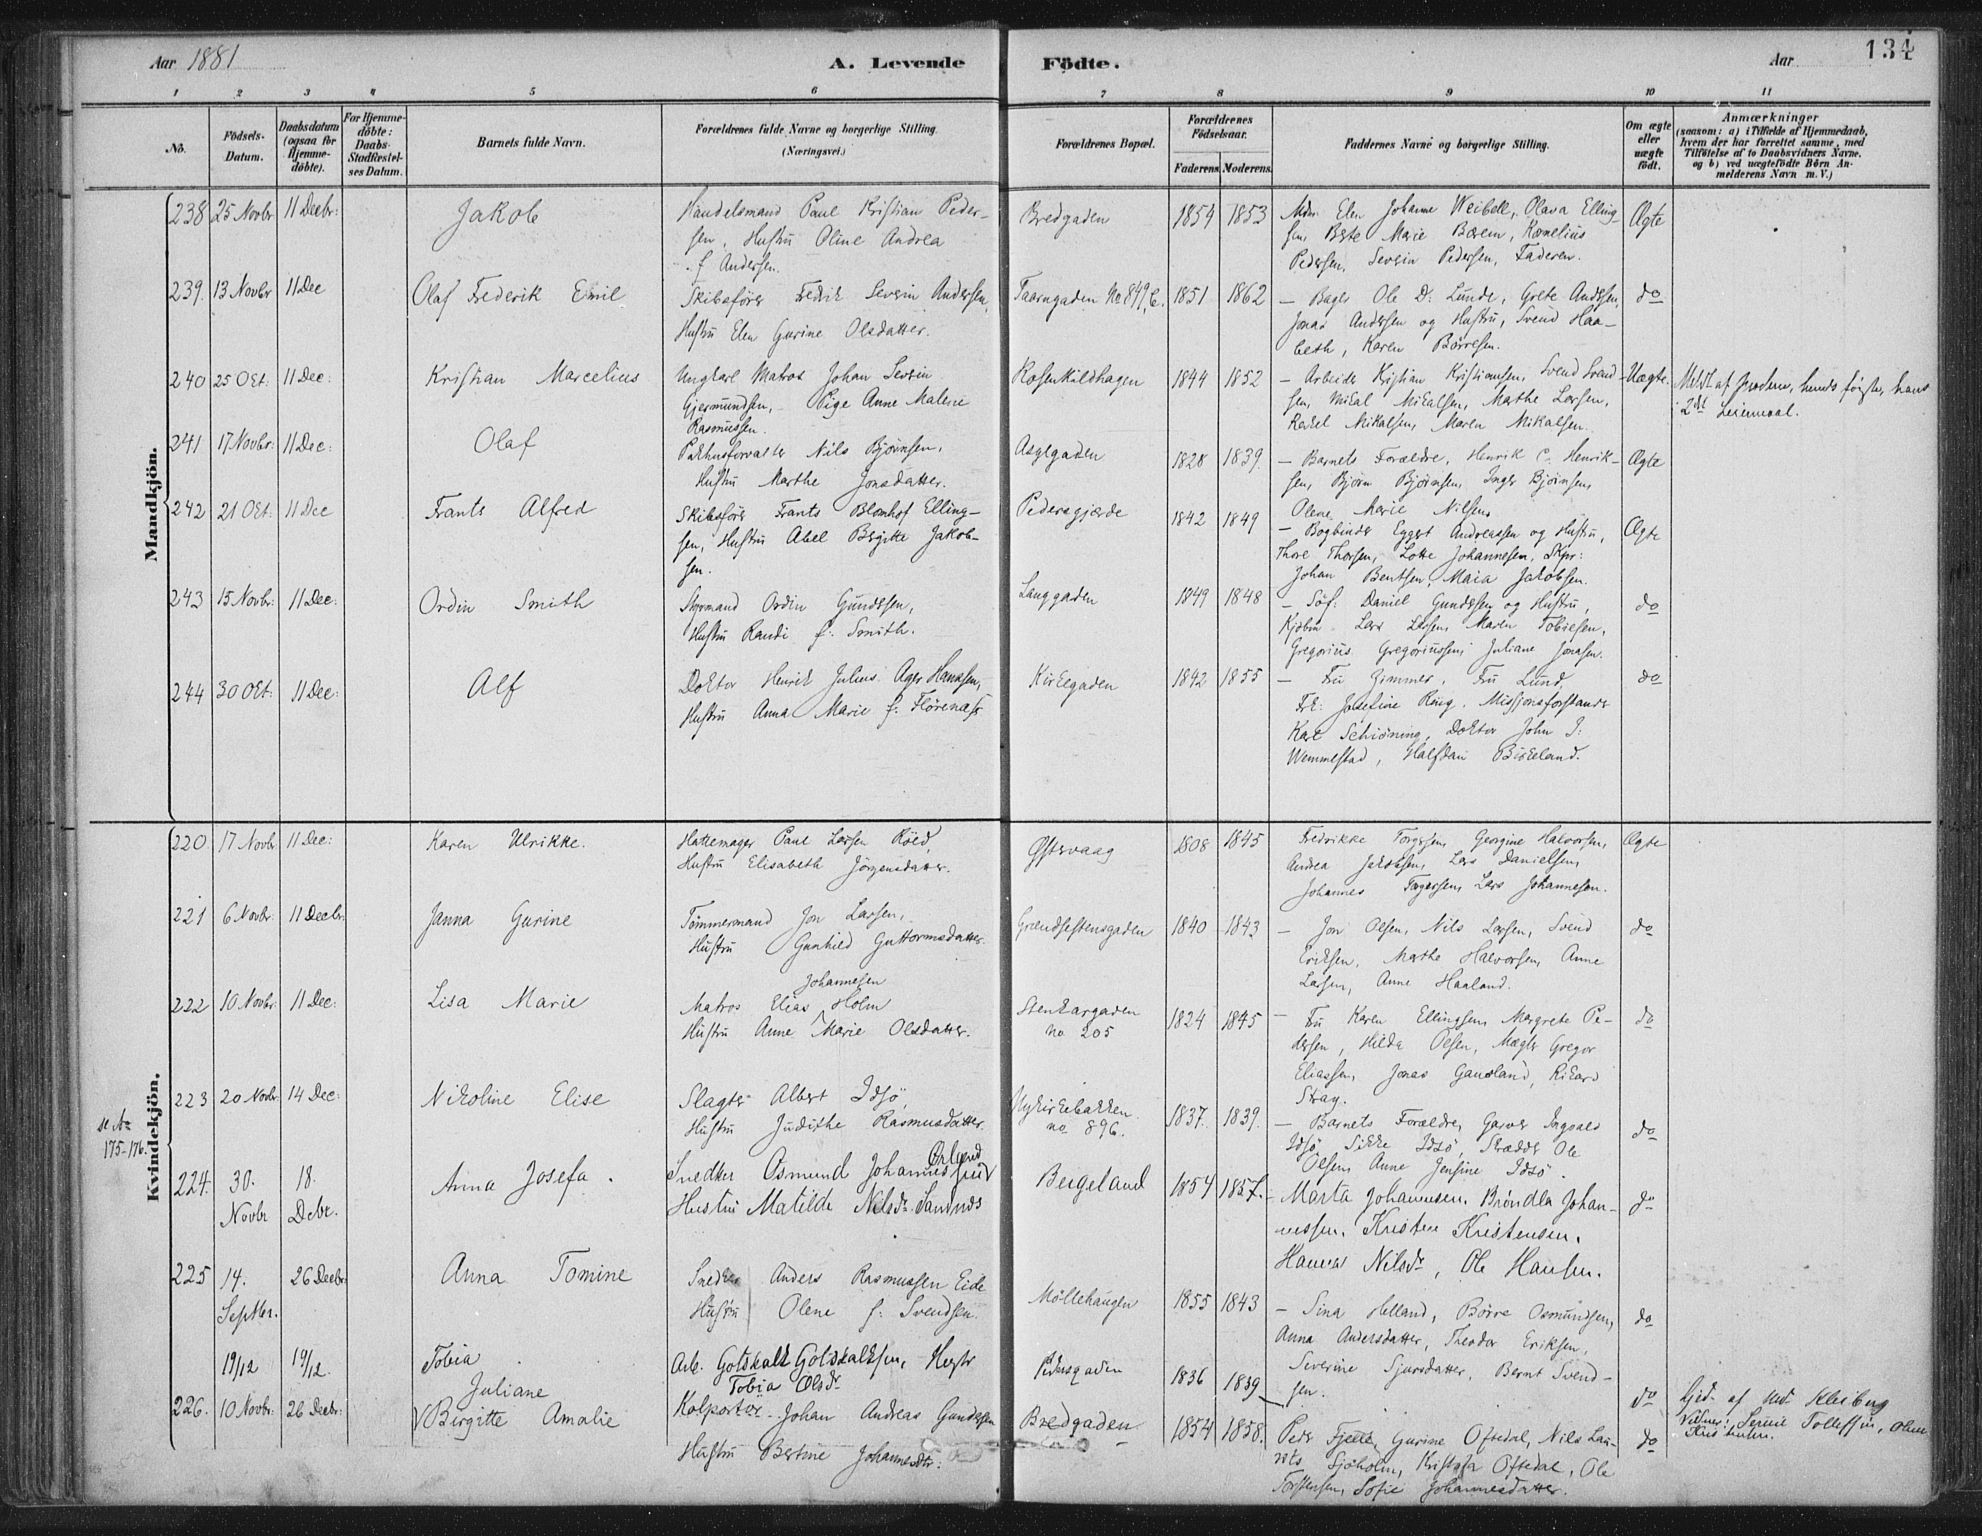 Aar 1881
A. Levende
Födte.
Aar
134
1 2 3 4 5 6 7 8 9 10 11
No.
Födsels-
Datum.
Daabsdatum
(ogsaa for
Hjemme-
döbte).
For Hjemme-
döbte:
Daabs-
Stadfæstel-
ses Datum.
Barnets fulde Navn.
Forældrenes fulde Navne og borgerlige Stilling.
(Næringsvei.)
Forældrenes Bopæl.
Forældrenes
Födselsaar.
Faderens Moderens
Faddernes Navne og borgerlige Stilling.
Om ægte
eller
uægte
födt.
Anmærkninger
(saasom: a) i Tilfælde af Hjemmedaab,
hvem der har forrettet samme, med
Tilföielse af to Daabsvidners Navne,
og b) ved uægtefödte Börn An-
melderens Navn m. V.)
Mandkjön.
238 25 Novbr 11 Decbr: Jakob
Handelsmand Paul Kristian Peder-
sen, Hustru Oline Andrea
f. Andersen.
Bredgaden 1854 1853
Elen Johanne Weibell, Olava Elling-
sen, Berte Marie Bærem, Kornelius
Pedersen, Severin Pedersen, Faderen.
Ægte
239. 13 Novbr 11 Dec Olaf Frederik Emil
Skibsfører Fredrik Severin Andersen,
Hustru Elen Gurine Olsdatter.
Taarngaden No 849, 1851 1862
– Bager Ole D. Lunde, Grete Andersen,
Jonas Andersen og Hustru, Svend Haa-
beth, Karen Børresen.
do
240 25 Okt: 11 Dec: Kristian Marcelius
Ungkarl Matros Johan Severin
Gjermundsen, Pige Anne Malene
Rasmussen.
Rosenkildhagen 1844 1852
– Arbeider Kristian Kristiansen, Svend Svend-
sen, Mikal Mikalsen, Marthe Larsen,
Rakel Mikalsen, Maren Mikalsen.
Uægte.
Meldt af Jordem, hendes første, hans
2det Leiermaal.
241 17 Novbr: 11 Dec: Olaf
Pakhusforvalter Nils Bjørnsen,
Hustru Marthe Jonsdatter.
Asylgaden 1828 1839.
– Barnets Forældre, Henrik C. Henrik-
sen, Bjørn Bjørnsen, Inger Bjørnsen,
Olene Marie Nilsen.
Ægte
242 21 Okt: 11 Dec Frants Alfred
Skibsfører Frants Blomhof Elling-
sen, Hustru Abel Birgitte Jakob-
sen.
Pedersgjærde 1842 1849
– Bogbinder Eggert Andreassen og Hustru,
Thore Thorsen, Lotte Johannesen, Skpr:
Johan Bentsen, Maia Jakobsen.
Ægte
243 15 Novbr: 11 Dec: Ordin Smith
Styrmand Ordin Gundersen,
Hustru Randi f: Smith.
Langgaden 1849 1848
– Søf: Daniel Gundersen og Hustru,
Kjøbm. Lars Larsen, Maren Tobiesen,
Gregorius Gregoriussen, Juliane Jonasen.
do
244 30 Okt: 11 Dec: Alf
Doktor Henrik Julius Ager Hanssen,
Hustru Anna Marie f: Flørenæss
Kirkegaden 1842 1855
– Fru Zimmer, Fru Lund,
Frk: Josefine Ring, Missionsforstander
Karl Schiøning, Doktor John J:
Wemmestad, Halfdan Birkeland.
do
Kvindekjön.
220 17 Novbr 11 Dec: Karen Ulrikke.
Hattemager Paul Larsen Röed,
Hustru Elisabeth Jörgensdatter.
Østervaag 1808 1845
Fredrikke Torgersen, Georgine Halvorsen,
Andrea Jakobsen, Lars Danielsen,
Johannes Fagersen, Lars Johannesen.
Ægte
221 6 Novbr: 11 Decbr: Janna Gurine
Tømmermand Jon Larsen,
Hustru Gunhild Guttormsdatter.
Grændseltensgaden 1840 1843
– Jon Olsen, Nils Larsen, Svend
Eriksen, Marthe Halvorsen, Anne
Larsen, Anne Haaland.
do
222 10 Novbr: 11 Dec: Lisa Marie
Johannesen
Matros Elias Holm
Hustru Anne Marie Olsdatter.
Stenkargaden
no 205
1824 1845
– Fru Karen Ellingsen, Margrete Pe-
dersen, Hilda Olsen, Mægler Gregor
Eliassen, Jonas Gausland, Rikard
Stray.
do
223 20 Novbr: 14 Dec: Nikoline Elise
Slagter Albert Idsö,
Hustru Judithe Rasmusdatter.
Nykirkebakken
no 896.
1837. 1839.
– Barnets Forældre, Garver Ingvald
Idsö, Sikke Idsö, Skrædder Ole
Olsen, Anne Jensine Idsö.
do
se No
175-176.
224. 30. Novbr 18. Dcbr. Anna Josefa.
Snedker Osmund Johannessen
Hustru Matilde Nilsdr. Sandnæs
Bergeland 1854 1857.
– Marta Johannesen, Bröndla Johan-
nessen, Kristen Kristensen,
Hanna Nilsdr, Ole Hansen.
do
225 14. Septbr. 26 Decbr: Anna Tomine
Snedker Anders Rasmussen Eide
Hustru Olene f: Svendsen.
Möllehaugen 1855 1843
– Sina Helland, Børre Osmundsen,
Anna Andersdatter, Theodor Eriksen,
Severine Sjursdatter, Bernt Svend-
sen.
do
19/12 19/12. Tobia
Juliane
Arb. Gotskalk Gotskalksen, Hustr
Tobia Olsdr
Pedersgaden 1836 1839
do
Gjed. af Md Kleiberg
Vidner: Serine Tollefsen, Olene
Kristensen.
226. 10 Novbr: 26 Decbr: Birgitte Amalie
Kolportør Johan Andreas Gundersen
Hustru Bertine Johannesdtr.
Bredgaden 1854 1858.
Peder Fjelde, Gurine Oftedal, Nils Lau-
rits Sjöholm, Kristofa Oftedal, Ole
Torstensen, Sofie Johannesdatter.
do